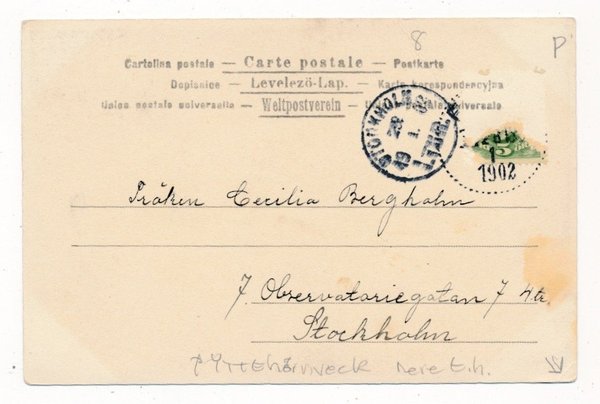 8
P
Cartolina postale — Carte postale — Postkarte
Dopisnice — Levelező-Lap. — Karta korespondencyjna
Union postale universelle — Weltpostverein — Unione postale universale
STOCKHOLM
28
1.
19
1.TUR.
1
1902
5
Fröken Cecilia Bergholm
7. Observatoriegatan 7 4 tr.
Stockholm